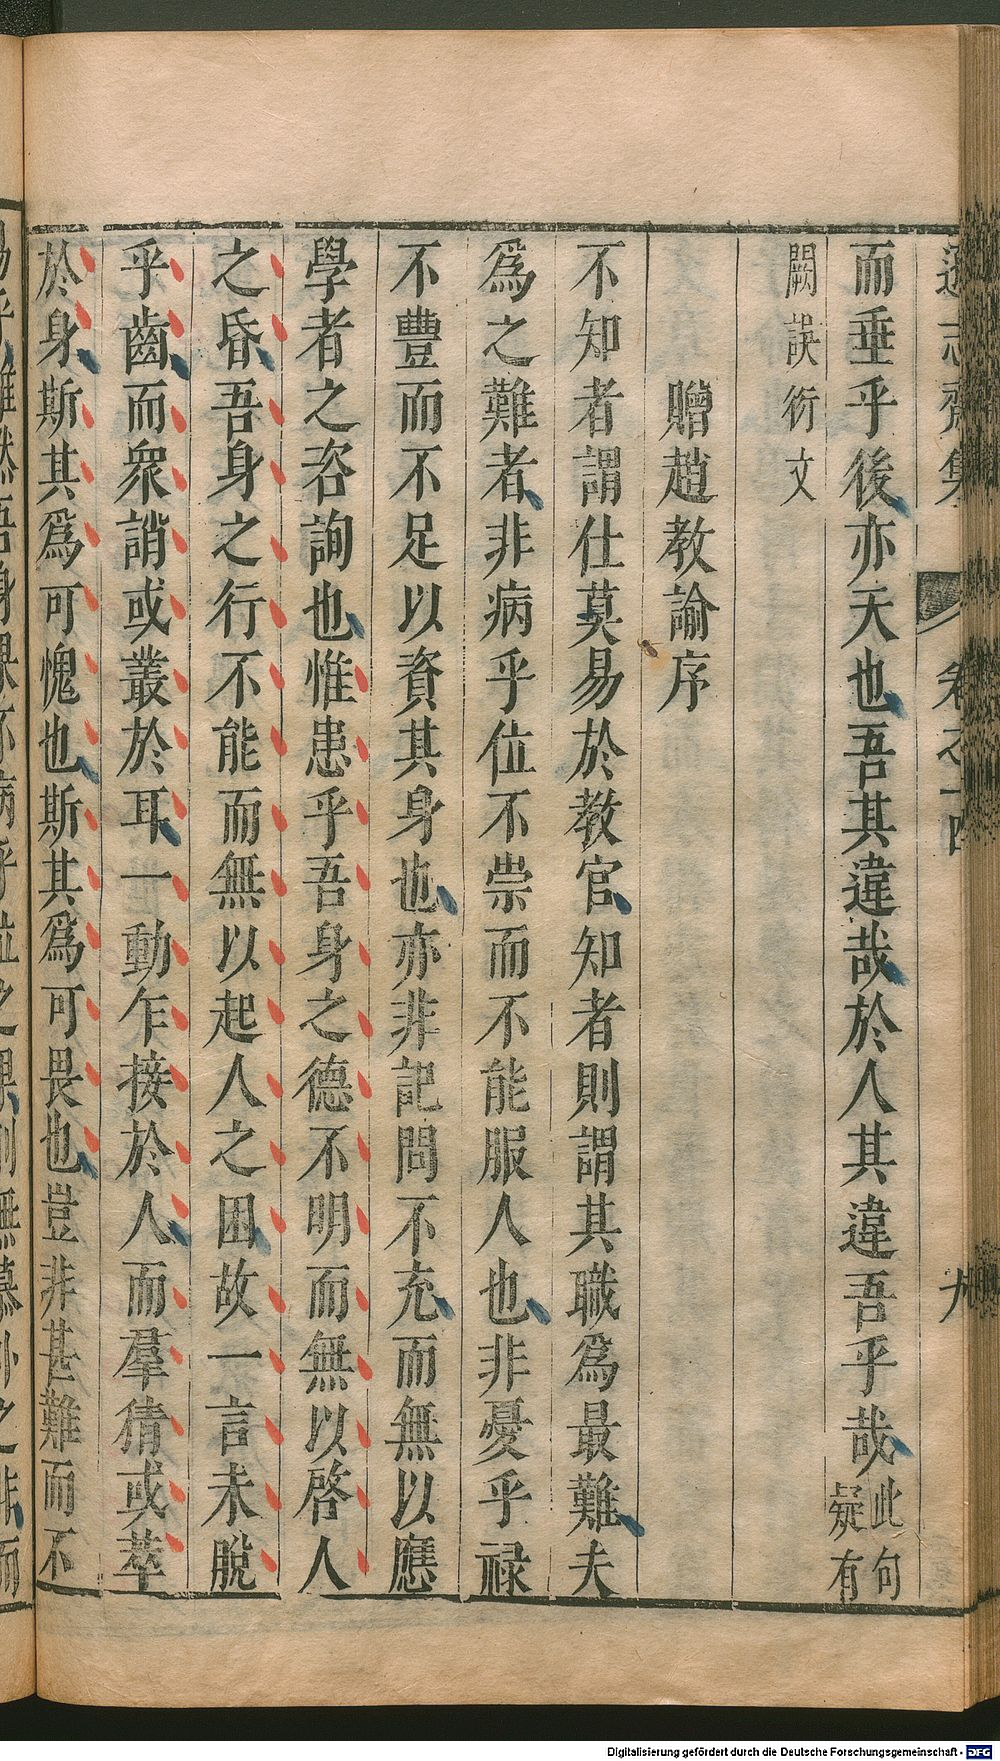 遜志齋集 卷之十四 九
而垂乎後亦天也吾其違哉於人其違吾乎哉此句疑有
闕誤衍文
贈趙教諭序
不知者謂仕莫易於教官知者則謂其職爲最難夫
爲之難者非病乎位不崇而不能服人也非憂乎祿
不豐而不足以資其身也亦非記問不充而無以應
學者之咨詢也惟患乎吾身之德不明而無以啓人
之昏吾身之行不能而無以起人之困故一言未脫
乎齒而衆誚或叢於耳一動乍接於人而羣猜或萃
於身斯其爲可愧也斯其爲可畏也豈非甚難而不
Digitalisierung gefördert durch die Deutsche Forschungsgemeinschaft - DFG